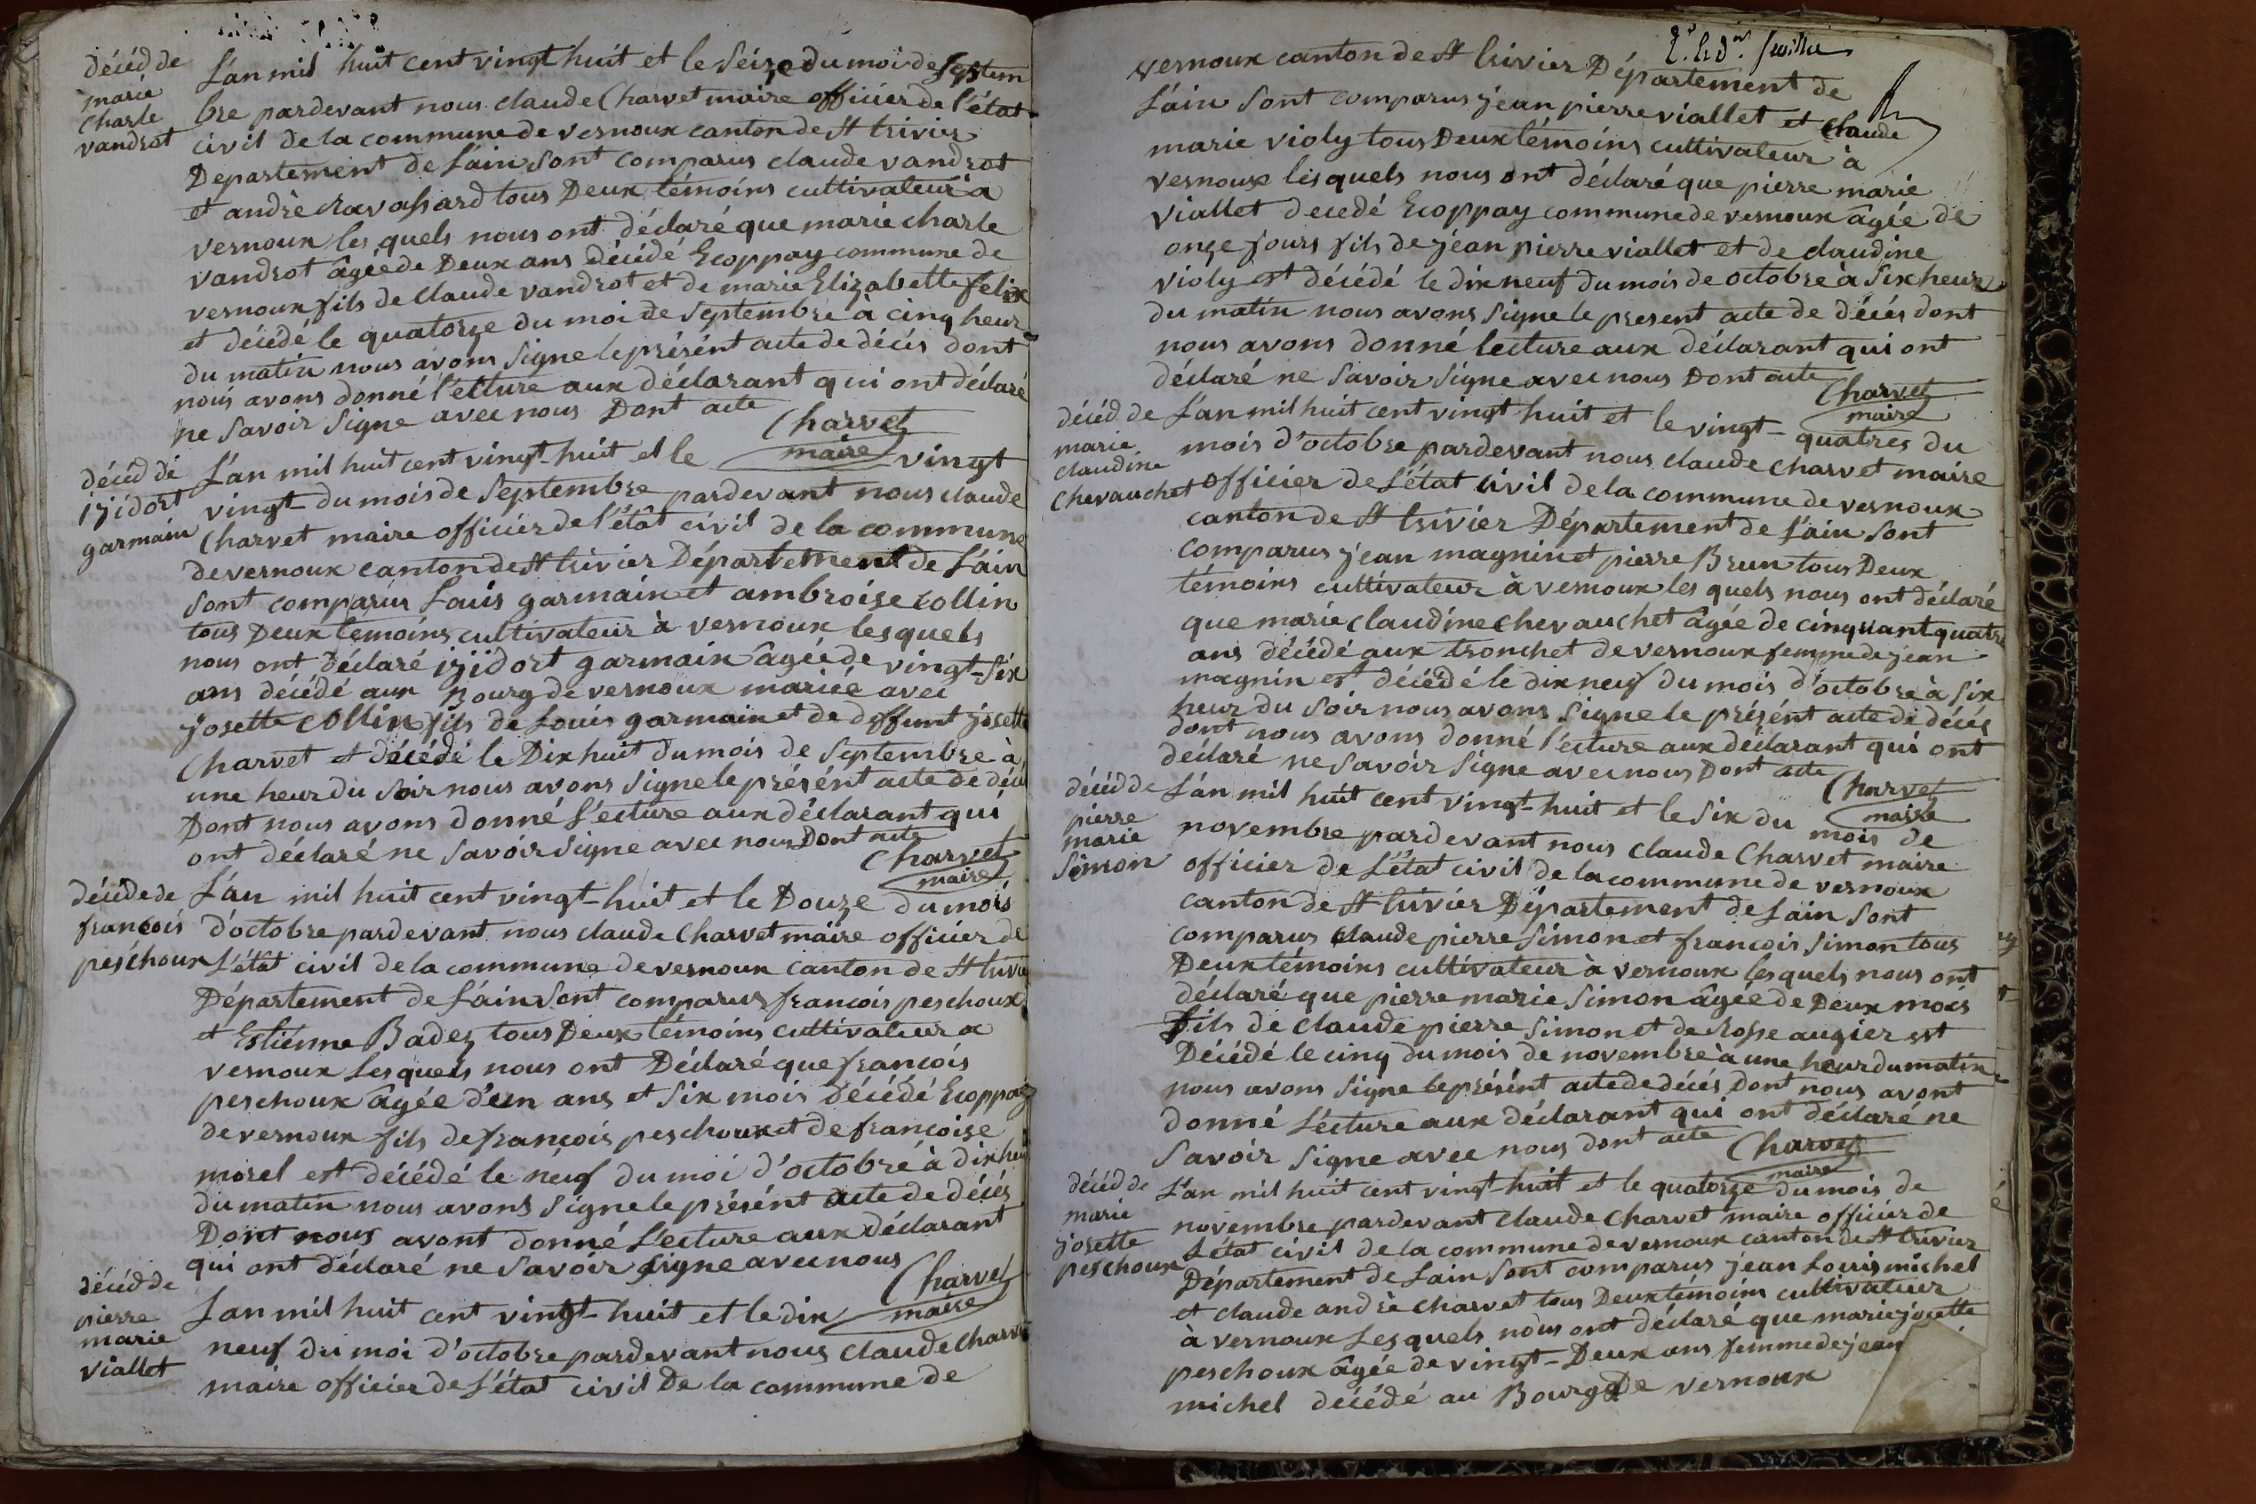 décéd de
marie
charle
vandrot
L'an mil huit cent vingt huit et le seize du moi de septem
bre pardevant nous claude Charvet maire officier de l'état
civil de la commune de vernoux canton de st trivier
Departement de L'ain sont comparus claude vandrot
et andrè Ravassard tous Deux témoins cultivateur a
vernoux les quels nous ont déclaré que marie charle
vandrot âgée de Deux ans décédé Ecoppay commune de
vernoux fils de claude vandrot et de marie Elizabette felix
et décédé le quatorze du moi de septembre à cinq heur
du matin nous avons signe le présént acte de décés dont
nous avons donné l'ecture aux déclarant qui ont déclaré
ne savoir signe avec nous Dont acte
Charvet
maire
décéd de
izidort
garmain
L'an mil huit cent vingt-huit et le vingt
vingt du mois de septembre pardevant nous claude
Charvet maire officier de l'état civil de la commune
de vernoux canton de st trivier Département de L'ain
sont comparus Louis garmain et ambroise collin
tous Deux témoins cultivateur à vernoux les quels
nous ont déclaré izidort garmain âgée de vingt-six
ans décédé aux Bourg de vernoux mariée avec
josette collin fils de Louis garmain et de deffunt josette
Charvet et décédé le Dix huit du mois de septembre à
une heur du soir nous avons signe le présént acte de décé
Dont nous avons donné L'ecture aux déclarant qui
ont déclaré ne savoir signe avec nous Dont acte
Charvet
maire
décéde de
francois
peschoux
L'an mil huit cent vingt-huit et le Douze du mois
d'octobre pardevant nous claude Charvet maire officier de
L'état civil de la commune de vernoux canton de st trivi
Département de L'ain sont comparus francois peschoux
et Estienne Badez tous Deux témoins cultivateur a
vernoux Les quels nous ont Déclaré que francois
peschoux âgée d'un ans et six mois décédé Ecoppay
de vernoux fils de francois peschoux et de francoise
morel est décédé le neuf du moi d'octobre à dix heu
du matin nous avons signe le présént acte de décés
Dont nous avont donné L'ecture aux déclarant
qui ont déclaré ne savoir signe avec nous
Charvet
maire
décéd de
pierre
marie
viallet
L'an mil huit cent vingt-huit et le dix
neuf du moi d'octobre pardevant nous claude Charve
maire officier de L'état civil De la commune de
vernoux canton de st trivier Département de
L'ain sont comparus jean pierre viallet et claude
marie violy tous Deux témoins cultivateur à
vernoux lesquels nous ont déclaré que pierre marie
viallet decedé Ecoppay commune de vernoux âgée de
onze jours fils de jéan pierre viallet et de claudine
violy est décédé le dix neuf du mois de octobre à six heur
du matin nous avons signe le present acte de décés dont
nous avons donné lecture aux déclarant qui ont
déclaré ne savoir signe avec nous Dont acte
Charvet
maire
décéd de
marie
claudine
chevauchet
L'an mil huit cent vingt huit et le vingt-quatres du
mois d'octobre pardevant nous claude charvet maire
officier de L'état civil de la commune de vernoux
canton de st trivier Département de L'ain sont
comparus jean magnin et pierre Brun tous Deux
témoins cultivateur à vernoux les quels nous ont déclaré
que marie claudine chevauchet âgée de cinquant quatre
ans décédé aux tronchet de vernoux femme de jean
magnin est décédé le dix neuf du mois d'octobre à six
heur du soir nous avons signe le présént acte de décés
dont nous avons donné l'ecture aux déclarant qui ont
declaré ne savoir signe avec nous Dont acte
Charvet
maire
décéd de
pierre
marie
simon
L'an mil huit cent vingt-huit et le six du mois de
novembre pardevant nous claude Charvet maire
officier de L'état civil de la commune de vernoux
canton de st trivier Département de Lain sont
comparus claude pierre Simon et francois simon tous
Deux témoins cultivateur à vernoux les quels nous ont
déclaré que pierre marie Simon âgée de Deux mois
fils de claude pierre simon et de Rosse augier est
Décédé le cinq du mois de novembre à une heur du matin
nous avons signe le présént acte de décés Dont nous avont
donné L'ecture aux déclarant qui ont déclaré ne
savoir signe avec nous dont acte
Charvet
maire
décéd de
marie
josette
peschoux
L'an mil huit cent vingt-huit et le quatorze du mois de
novembre pardevant claude Charvet maire officier de
L'état civil de la commune de vernoux canton de st trivier
Département de Lain sont comparus jéan Louis michel
et claude andrè charvet tous Deux témoins cultivateur
à vernoux Les quels nous ont déclaré que marie josette
peschoux âgée de vingt-Deux ans femme de jean
michel décédé au Bourg De vernoux